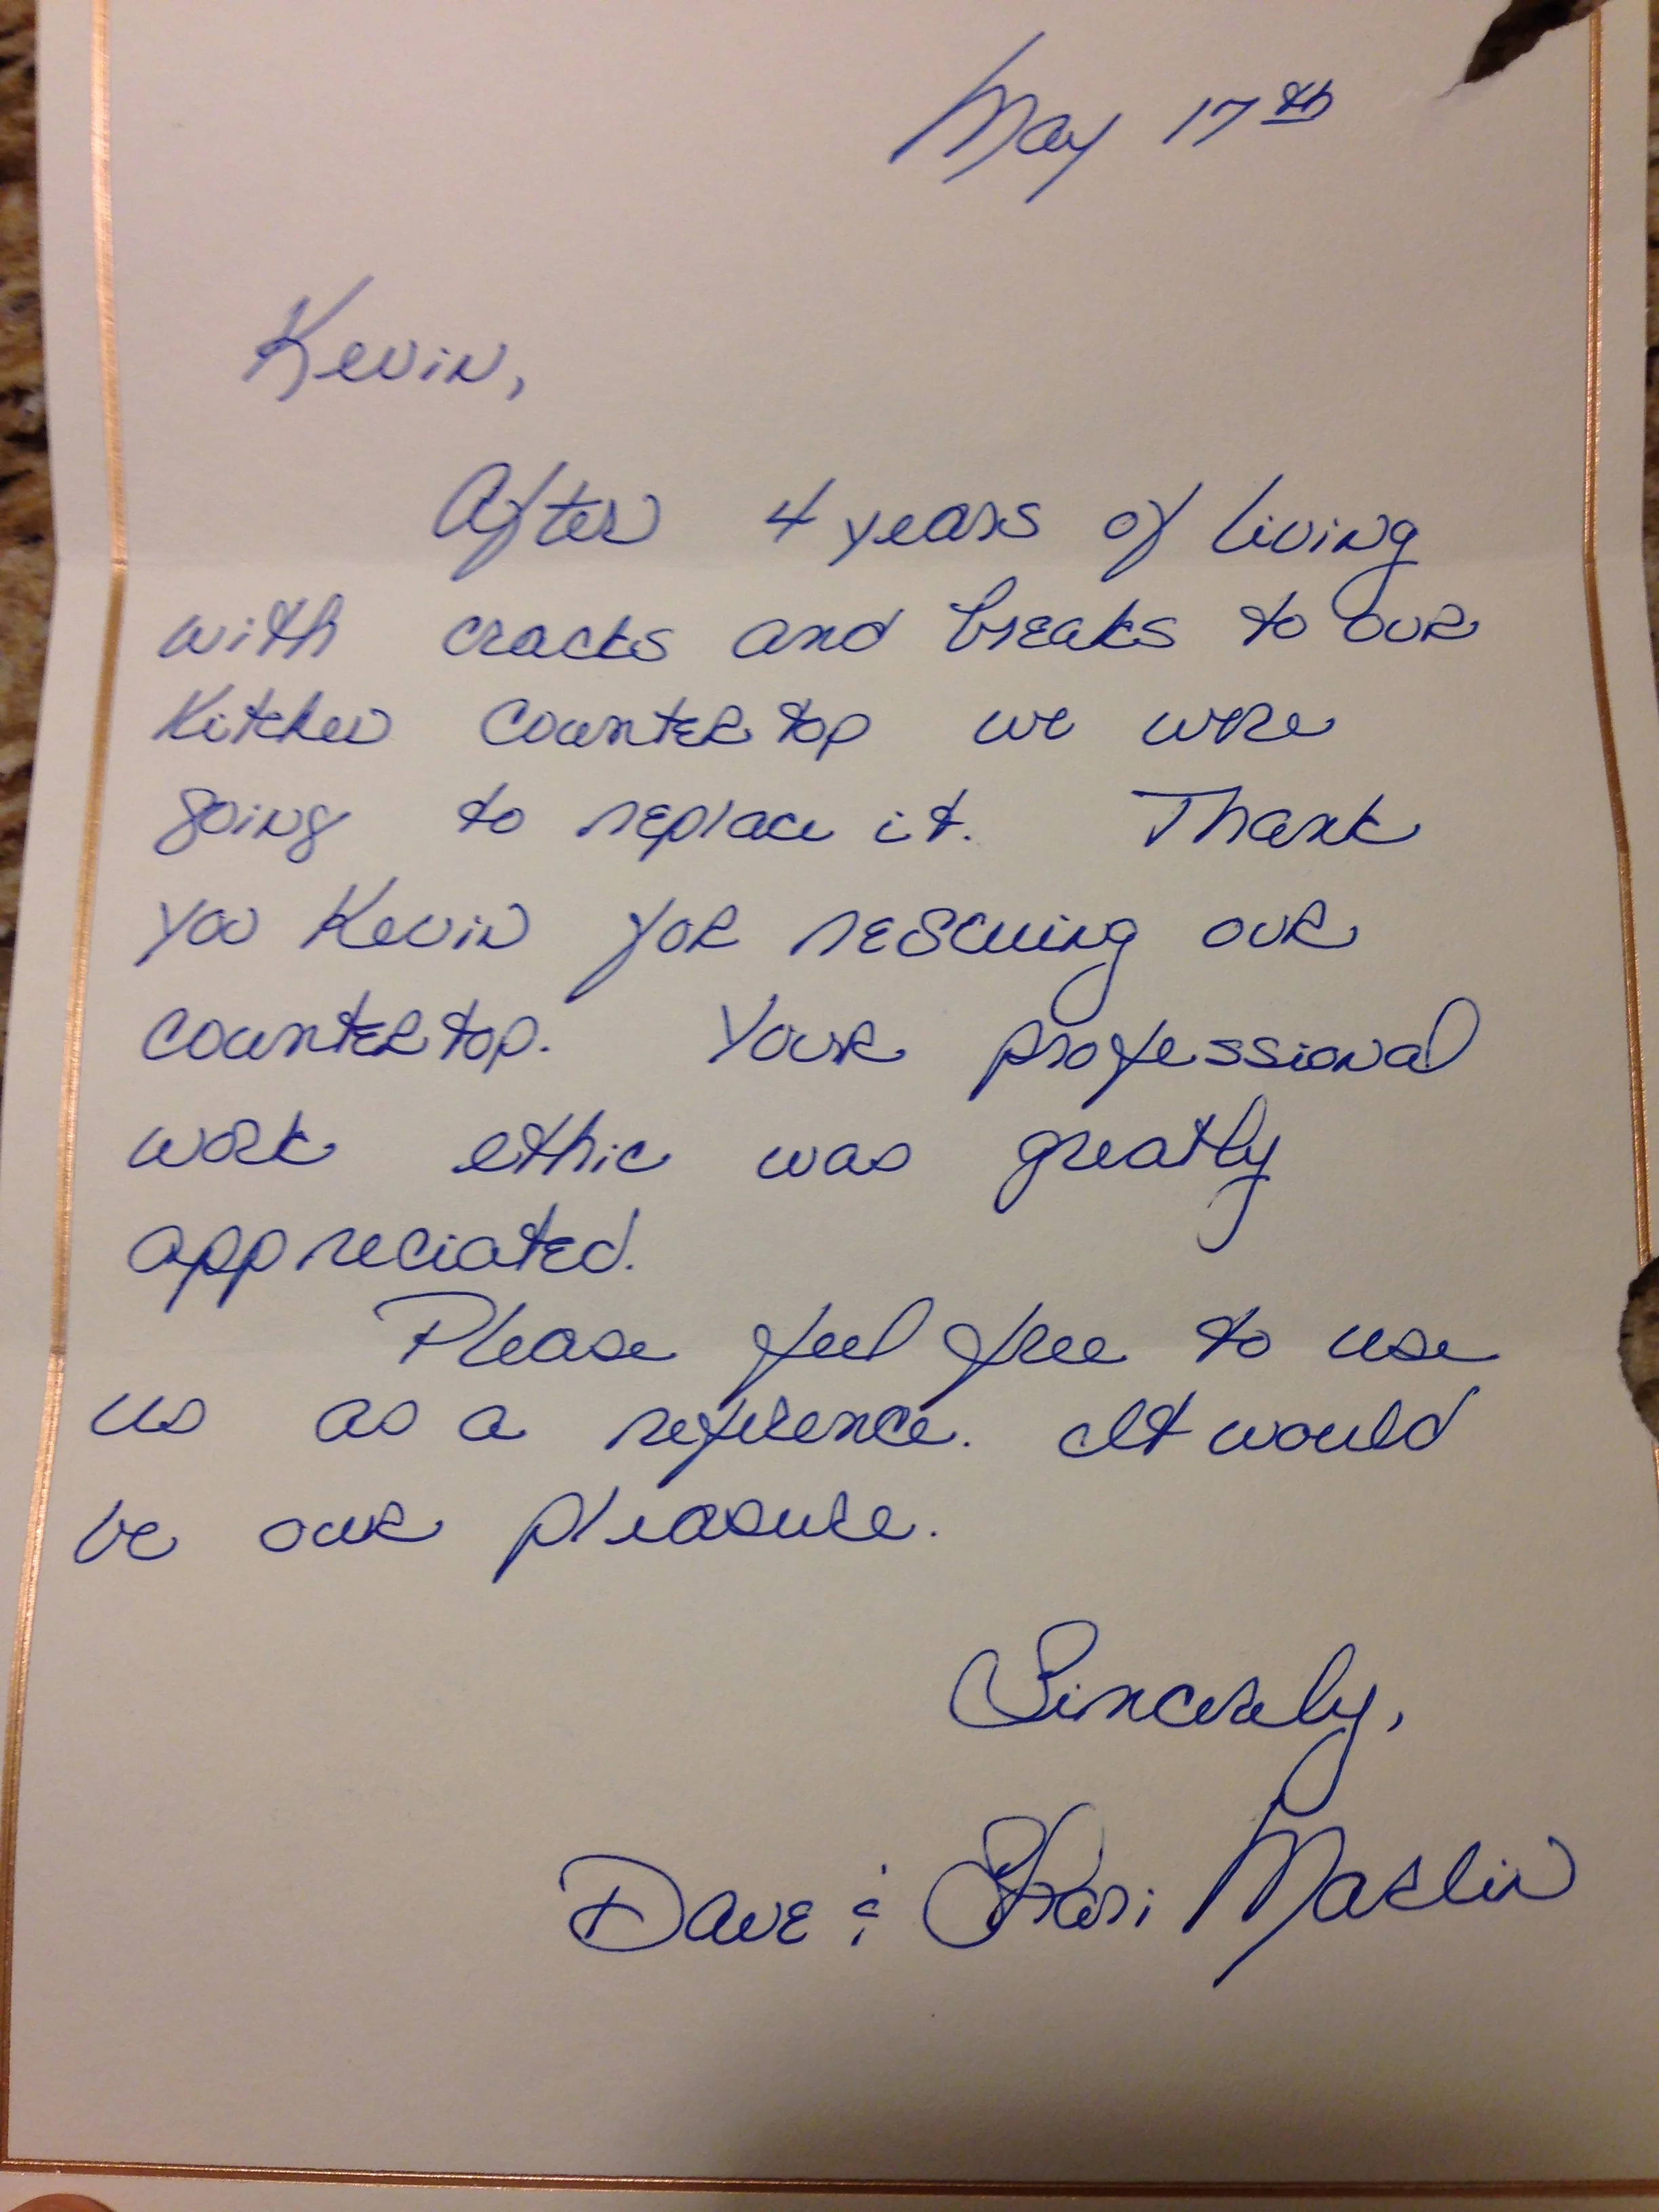 May 17th
Kevin,
After 4 years of living
with cracks and breaks to our
Kitchen counter top we were
going to replace it. Thank
you Kevin for rescuing our
counter top. Your professional
work ethic was greatly
appreciated.
Please feel free to use
us as a reference. It would
be our pleasure.
Sincerely,
Dave &